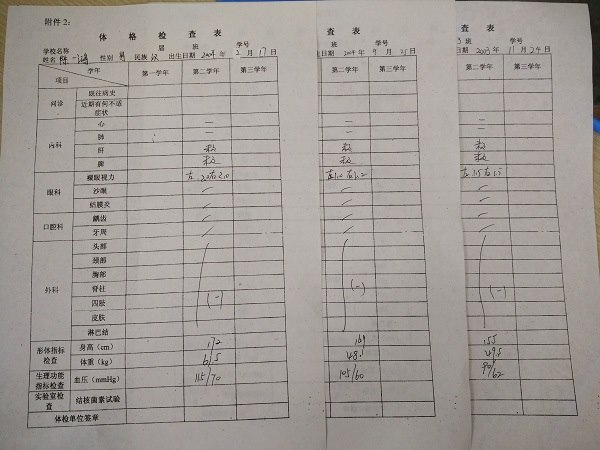 附件2：
体 格 检 查 表 查 表 表
学校名称 届 班 学号 班 学号 班 学号
姓名 陈一鸿 性别 男 民族 汉 出生日期 2004年 2月 17日 出生日期 2004年 9月 25日 日期 2003年 11月 24日
学年 第一学年 第二学年 第三学年 第二学年 第三学年 第二学年 第三学年
项目
问诊 既往病史
近期有何不适症状
内科 心 — — —
肺 — — —
肝
脾
眼科 裸眼视力 左1.2右1.2 左1.5右1.5
沙眼
结膜炎
口腔科 龋齿
牙周
外科 头部
颈部
胸部
脊柱 (-) (-)
四肢 (-)
皮肤
淋巴结
形体指标检查 身高（cm） 172 169 155
体重（kg） 61.5 48.1 49.5
生理功能指标检查 血压（mmHg） 115/70 105/60 90/62
实验室检查 结核菌素试验
体检单位签章